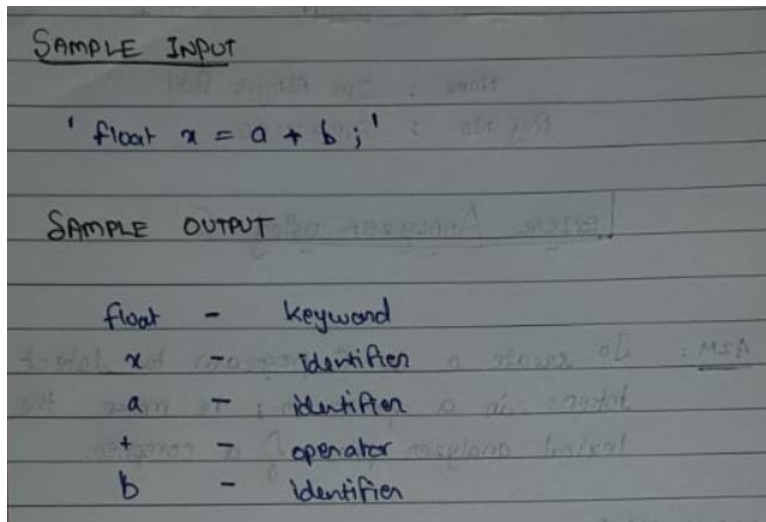 SAMPLE INPUT
' float x = a + b ; '
SAMPLE OUTPUT
float - keyword
x - identifier
a - identifier
+ - operator
b - identifier